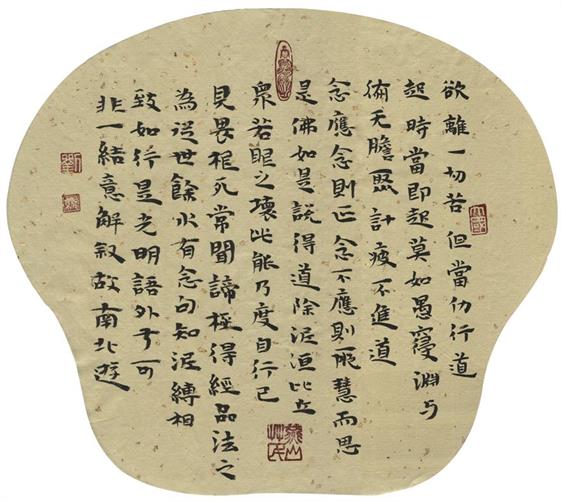 欲離一切苦但當仂行道
起時當即起莫如愚寑淵与
无瞻聚計疲不進道
念應念則正念不應則邪慧而思
是佛如是說得道除泥洹比立
衆若眼之壞比能乃度自行已
見畏棍死常聞諦極得經品法之
為從世餘水有念句知泥縛相
致如行昱光明語外于可
非一結意解叙故南北遊